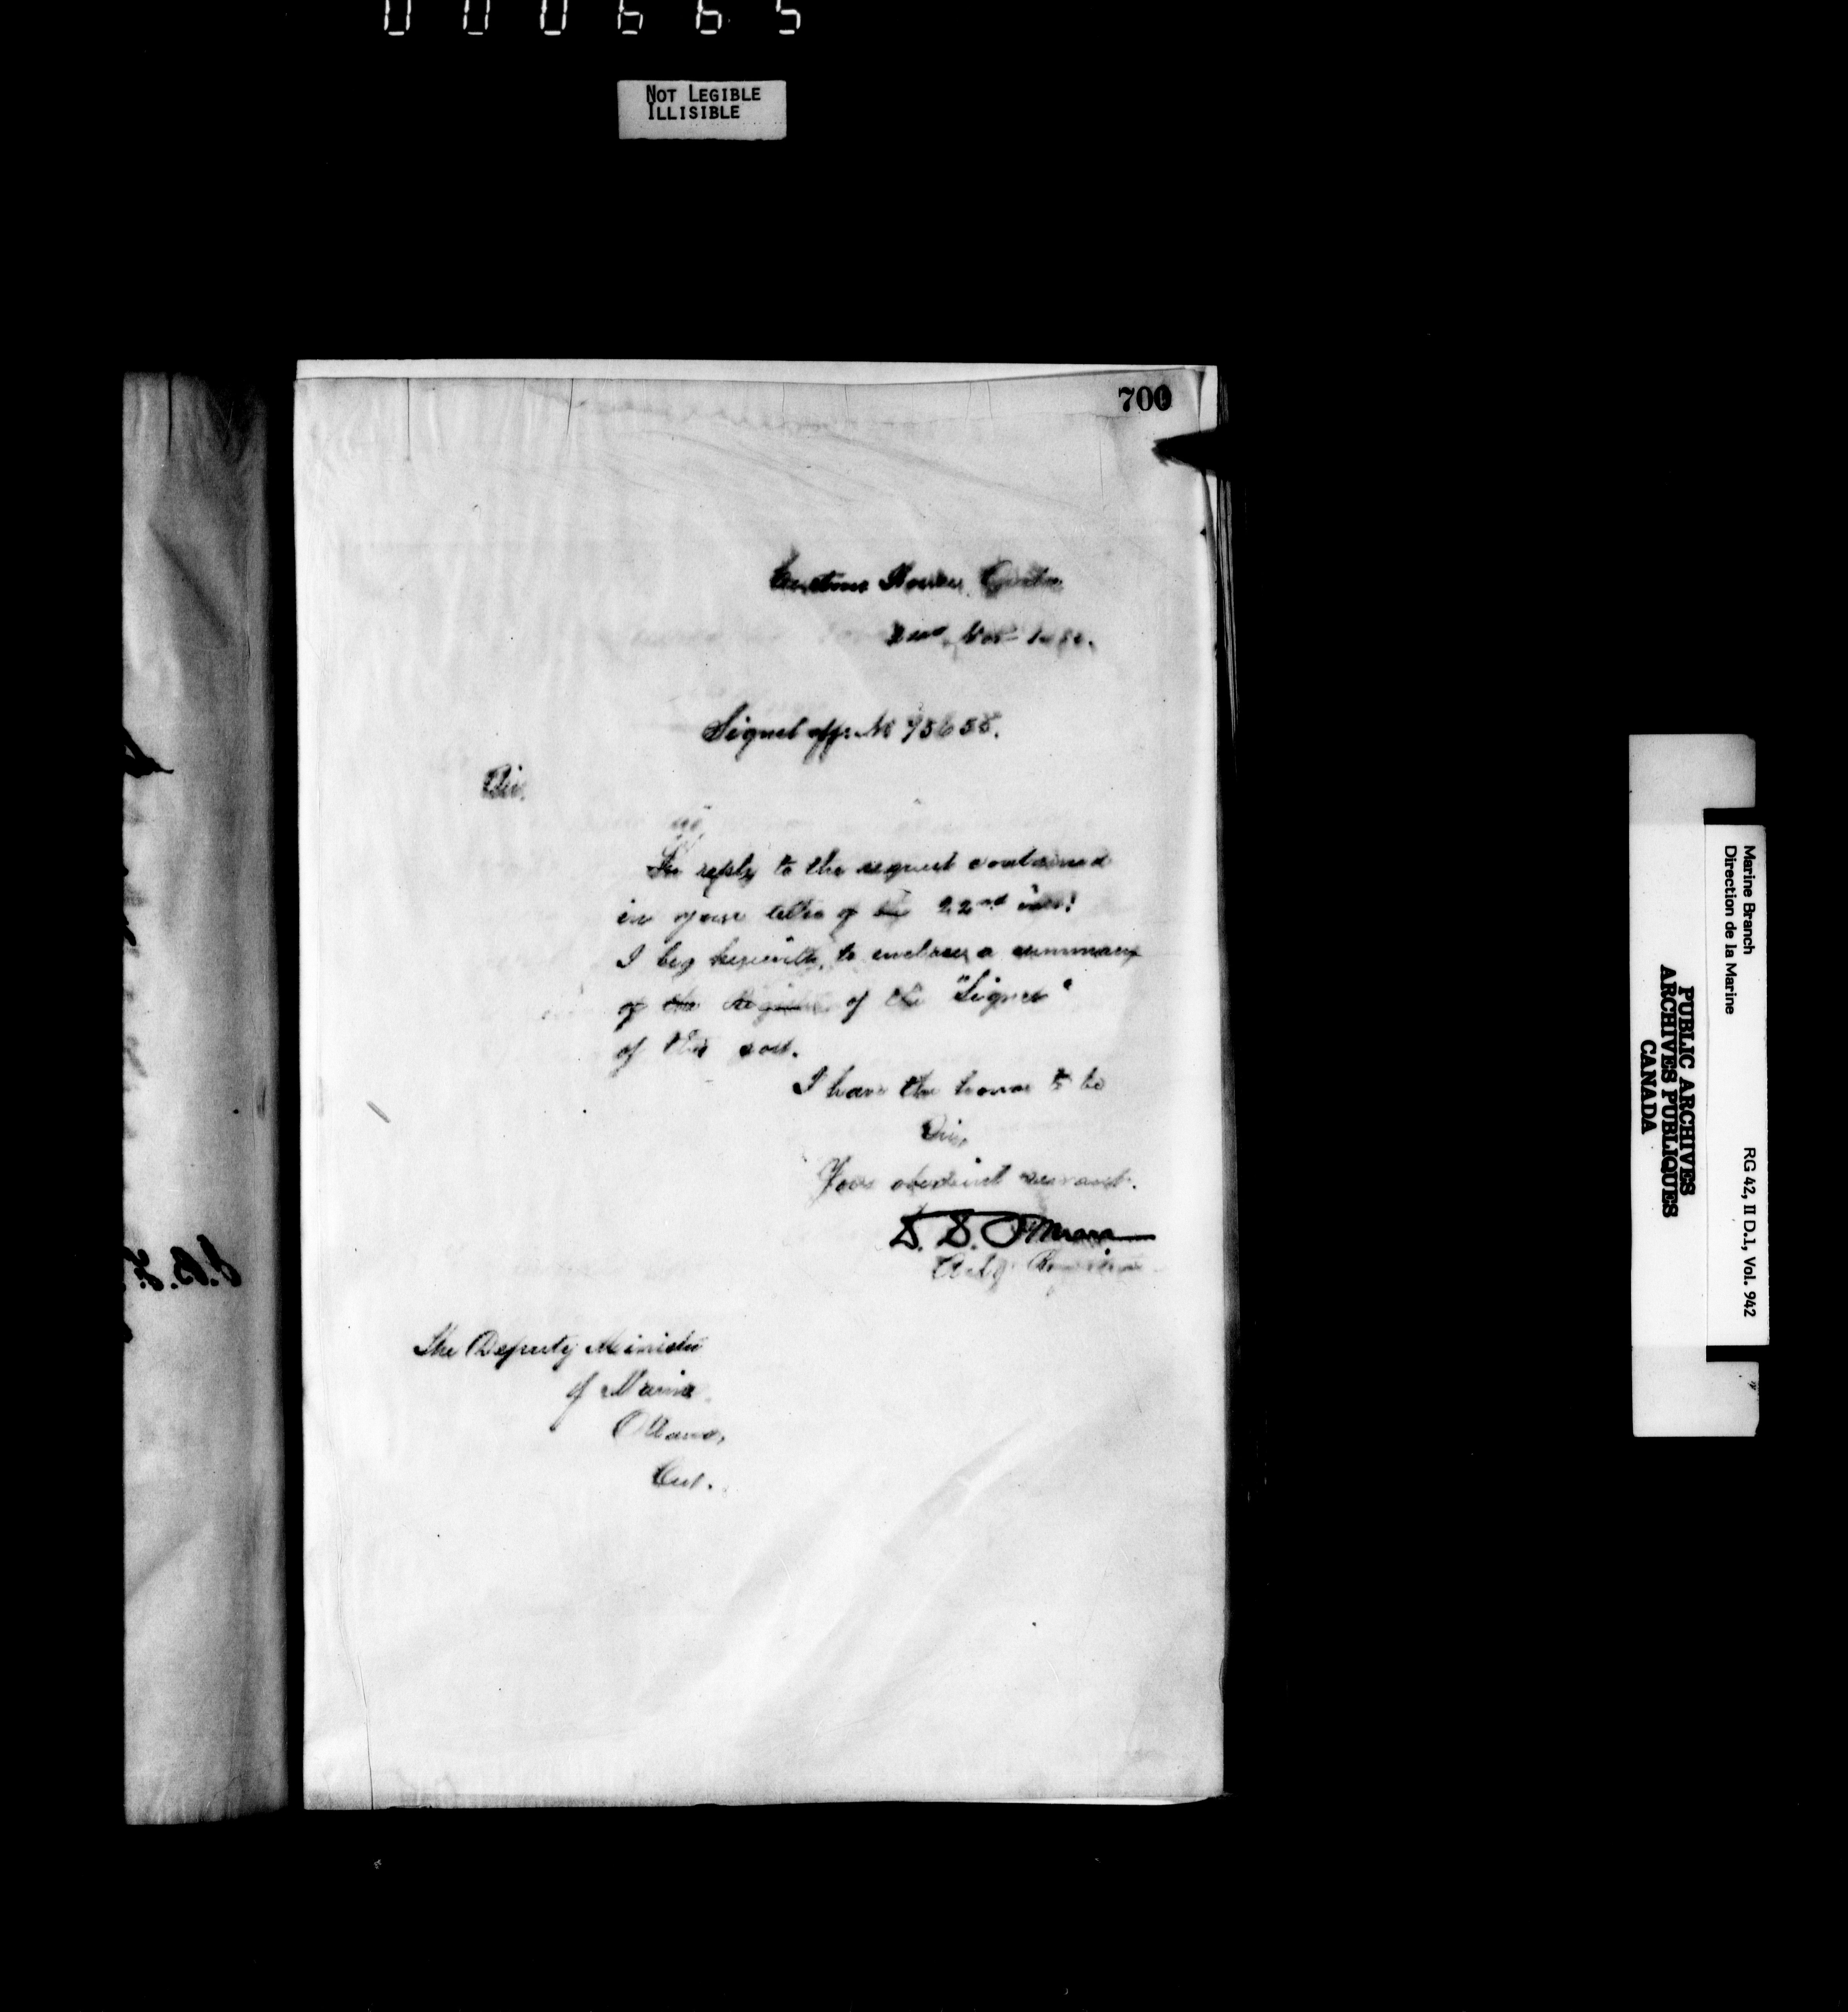 000665
NOT LEGIBLE
ILLISIBLE
700
Customs House,
Nov
Signet off. No
Sir,
In reply to the request contained
in your letter of the 22nd inst.
I beg herewith, to enclose a summary
of the Register of the "Signet"
of this port.
I have the honor to be
Sir,
Your obedient servant.
The Deputy Minister
of Marine
Ottawa,
Ont.
Marine Branch
Direction de la Marine
RG 42, II D.1, Vol. 942
PUBLIC ARCHIVES
ARCHIVES PUBLIQUES
CANADA